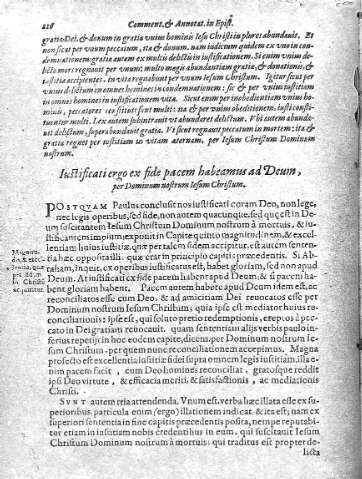 226 Comment. & Annotat. in Epist.
gratio Dei, & donum in gratia unius hominis Iesu Christi in plures abundavit. Et
non sicut per unum peccatum, ita & donum. nam iudicium quidem ex uno in con-
demnationem: gratia autem ex multis delictis in iustificationem. Si enim unius de-
licto mors regnavit per unum: multo magis abundantiam gratiæ, & donationis, &
iustitiæ accipientes, in vita regnabunt per unum Iesum Christum. Igitur sicut per
unius delictum in omnes homines in condemnationem: sic & per unius iustitiam
in omnes homines in iustificationem vitæ. Sicut enim per inobedientiam unius ho-
minis, peccatores constituti sunt multi: ita & per unius obeditionem, iusti consti-
tuentur multi. Lex autem subintravit ut abundaret delictum. Vbi autem abunda-
vit delictum, superabundavit gratia. Vt sicut regnavit peccatum in mortem: ita &
gratia regnet per iustitiam in vitam æternam, per Iesum Christum Dominum
nostrum.
Iustificati ergo ex fide pacem habeamus ad Deum,
per Dominum nostrum Iesum Christum.
POSTQVAM Paulus conclusit nos iustificati coram Deo, non lege,
nec legis operibus, sed fide, non autem quacunque, sed quç est in De-
um suscitantem Iesum Christum Dominum nostrum à mortuis, & iu-
stificantem impium; exponit in Capite quinto magnitudinem, & excel-
lentiam huius iustitiæ. quæ per talem suscipitur. est autem senten-
tia hæc opposita illi: quæ erat in principio capitis præcedentis. Si Ab-
raham, inquit, ex operibus iustificatus est, habet gloriam, sed non apud
Deum. At iustificati ex fide pacem habent apud Deum; & si pacem ha-
bent gloriam habent. Pacem autem habere apud Deum idem est, ac
reconciliatos esse cum Deo, & ad amicitiam Dei revocatos esse per
Dominum nostrum Iesum Christum; quia ipse est mediator huius re-
conciliationis: ipse est, qui soluto pretio redemptionis, ereptos à pec-
cato in Dei gratiam revocavit. quam sententiam aliis verbis paulo in-
ferius repetij in hoc eodem capite, dicens, per Dominum nostrum Ie-
sum Christum, per quem nunc reconciliationem accepimus. Magna
profecto est excellentia iustitiæ fidei supra omnem legis iustitiam. illa e-
nim pacem facit, cum Deo homines reconciliat, gratosque reddit
ipsi Deo virtute, & efficacia meriti, & satisfactionis, ac mediationis
Christi.
SVNT autem tria attendenda. Vnum est, verba hæc illata esse ex su-
perioribus. particula enim (ergo) illationem indicat. & ita est; nam ex
superiori sententia in fine capitis præcedentis posita, nempe reputabi-
tur etiam in iustitiam nobis credentibus in eum, qui suscitavit Iesum
Christum Dominum nostrum à mortuis; qui traditus est propter de-
licta